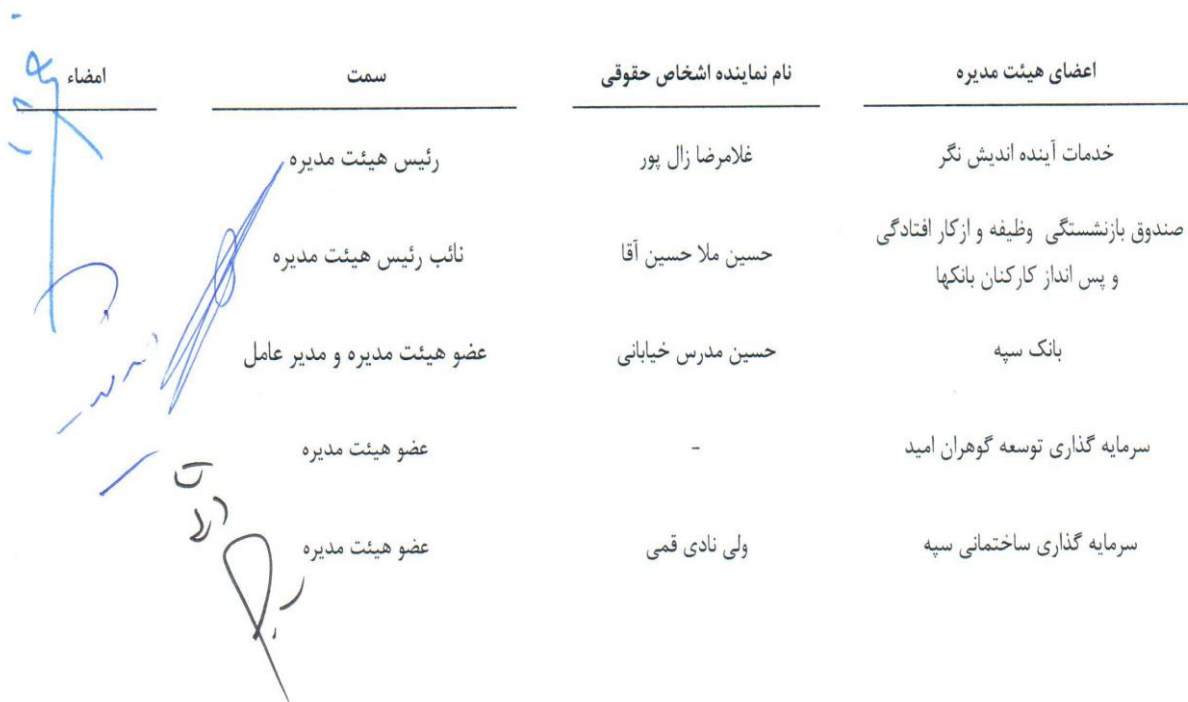 اعضای هیئت مدیره نام نماینده اشخاص حقوقی سمت امضاء
خدمات آینده اندیش نگر غلامرضا زال پور رئیس هیئت مدیره
صندوق بازنشستگی وظیفه و ازکار افتادگی و پس انداز کارکنان بانکها حسین ملا حسین آقا نائب رئیس هیئت مدیره
بانک سپه حسین مدرس خیابانی عضو هیئت مدیره و مدیر عامل
سرمایه گذاری توسعه گوهران امید - عضو هیئت مدیره
سرمایه گذاری ساختمانی سپه ولی نادی قمی عضو هیئت مدیره